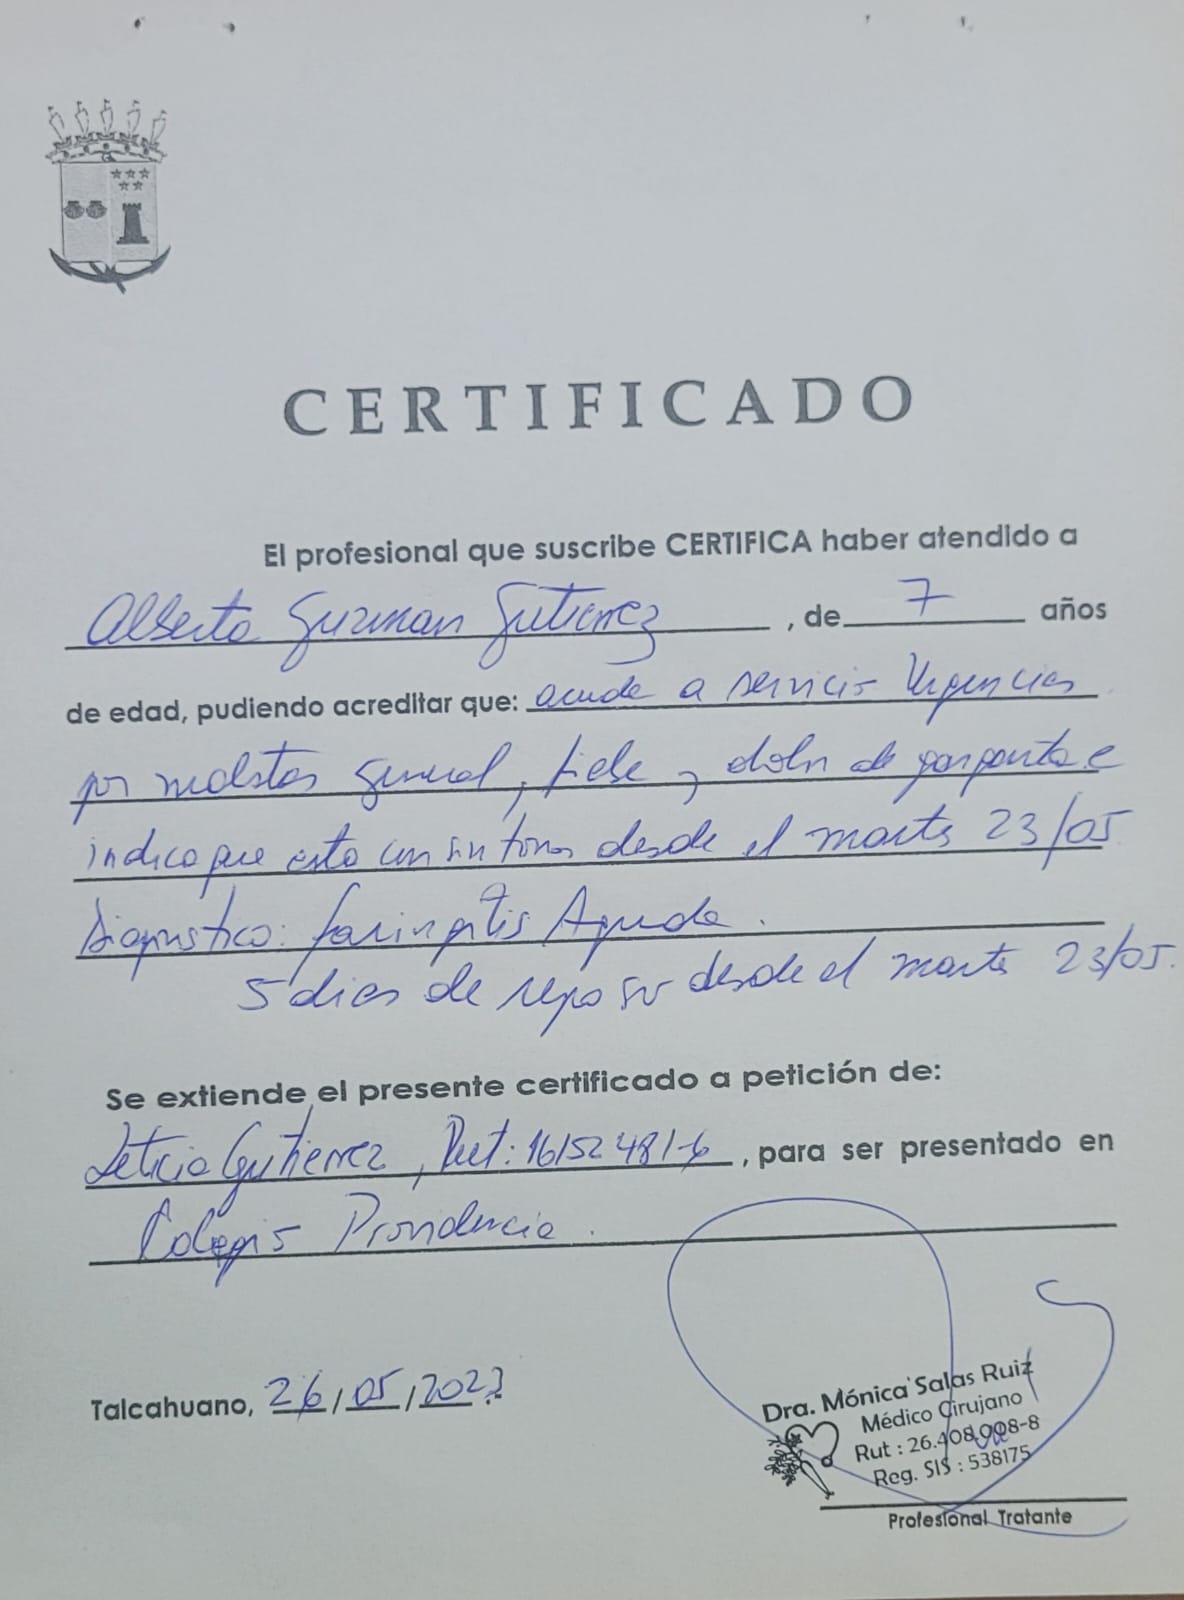 CERTIFICADO
El profesional que suscribe CERTIFICA haber atendido a
Alberto Guzman Gutierrez, de 7 años
de edad, pudiendo acreditar que: acude a servicio Urgencias
por malestar general, fiebe y dolor de garganta e
indica que esta con sintomas desde el martes 23/05
Diagnostico: faringitis Aguda.
5 dias de reposo desde el martes 23/05.
Se extiende el presente certificado a petición de:
Leticia Gutierrez, Rut: 16152481-6, para ser presentado en
Colegio Providencia.
Talcahuano, 26/05/2023
Dra. Mónica Salas Ruiz
Médico Cirujano
Rut : 26.408.908-8
Reg. SIS : 538175
Profesional Tratante